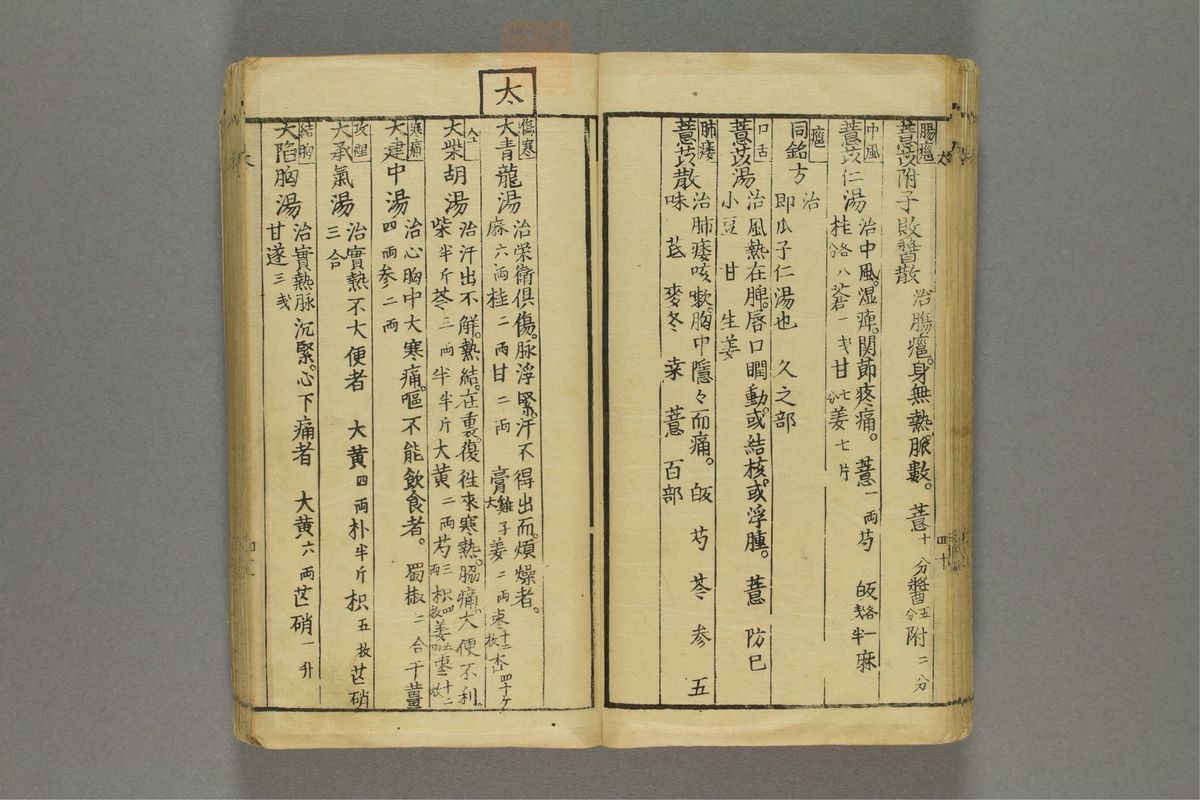 腸癰
薏苡附子敗醬散
治腸癰。身無熱。脈數。 薏十分 醬五分 附二分
中風
薏苡仁湯
治中風。湿痺。関節疼痛。 薏一両 芍 皈各一戋半 麻
桂各八分 蒼一戋 甘七分 姜七片
癰
同銘方
治
即瓜子仁湯也 久之部
口舌
薏苡湯
治風熱在脾。唇口瞤動。或結核。或浮腫。 薏 防已
小豆 甘 生姜
肺痿
薏苡散
治肺痿咳嗽。胸中隱々而痛。 皈 芍 苓 参 五
味 茋 麥冬 桒 薏 百部
太
傷寒
大青龍湯
治榮衛俱傷。脉浮緊。汗不得出而。煩燥者。
麻六両 桂二両 甘二両 膏雞子大 姜二両 枣十二枚 杏四十ケ
仝
大柴胡湯
治汗出不解。熱結。在裏。復徃來寒熱。脇痛。大便不利。
柴半斤 苓三両 半半斤 大黄二両 芍三両 枳四枚 姜五両 枣十二枚
寒痛
大建中湯
治心胸中大寒痛。嘔不能飲食者。 蜀椒二合 干薑
四両 参二両
攻裡
大承氣湯
治實熱不大便者 大黄四両 朴半斤 枳五枚 芒硝
三合
結胸
大陷胸湯
治實熱脉沉緊。心下痛者 大黄六両 芒硝一升
甘遂三戋
四十